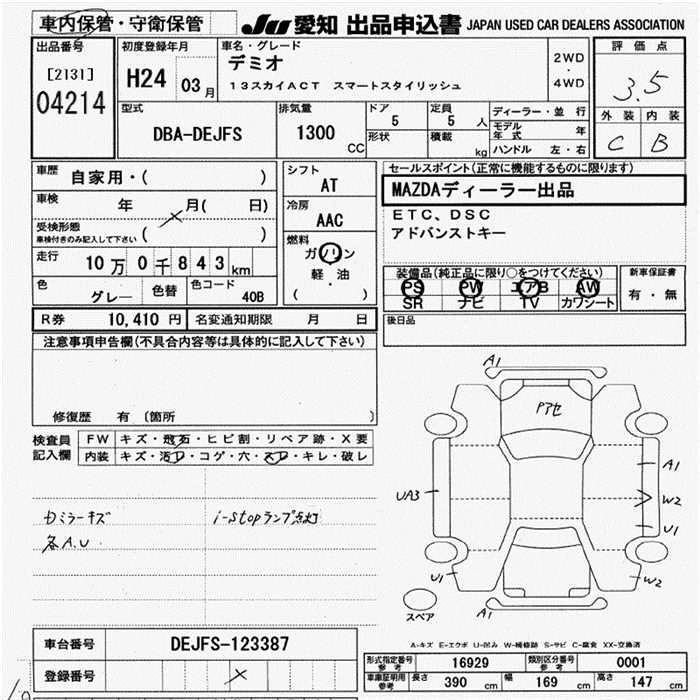 車内保管・守衛保管
JU 愛知 出品申込書 JAPAN USED CAR DEALERS ASSOCIATION
出品番号
[2131]
04214
初度登録年月
H24 03月
車名・グレード
デミオ
13スカイACT スマートスタイリッシュ
2WD
・
4WD
評価点
3.5
外装 内装
C B
型式
DBA-DEJFS
排気量
1300 CC
ドア
5
形状
定員
5 人
積載
kg
ディーラー・並 行
モデル年式 年
ハンドル 左・右
車歴 自家用・( )
車検 年 月( 日)
受検形態
車検付きのみ記入して下さい ( )
走行 10万0千843km
色 グレー 色替 色コード 40B
シフト
AT
冷房
AAC
燃料
ガソリン
軽・油
( )
セールスポイント(正常に機能するものに限ります)
MAZDAディーラー出品
ETC、DSC
アドバンストキー
装備品(純正品に限り○をつけてください)
PS PW エアB AW
SR ナビ TV カワシート
新車保証書
有・無
後日品
R券 10,410 円 名変通知期限 月 日
注意事項申告欄(不具合内容等は具体的に記入して下さい)
修復歴 有 〔箇所 〕
検査員
記入欄
FW キズ・飛石・ヒビ割・リペア跡・X要
内装 キズ・汚レ・コゲ・穴・スレ・キレ・破レ
ミラーキズ
各A.U
i-stopランプ点灯
A1
Pアセ
A1
UA3
W2
U1
U1
W2
スペア
A1
A-キズ E-エクボ U-凹み W-補修跡 S-サビ C-腐食 XX-交換済
車台番号 DEJFS-123387
登録番号
型式指定番号 参考 16929 類別区分番号 参考 0001
車庫証明用 参考 長さ 390 cm 幅 169 cm 高さ 147 cm